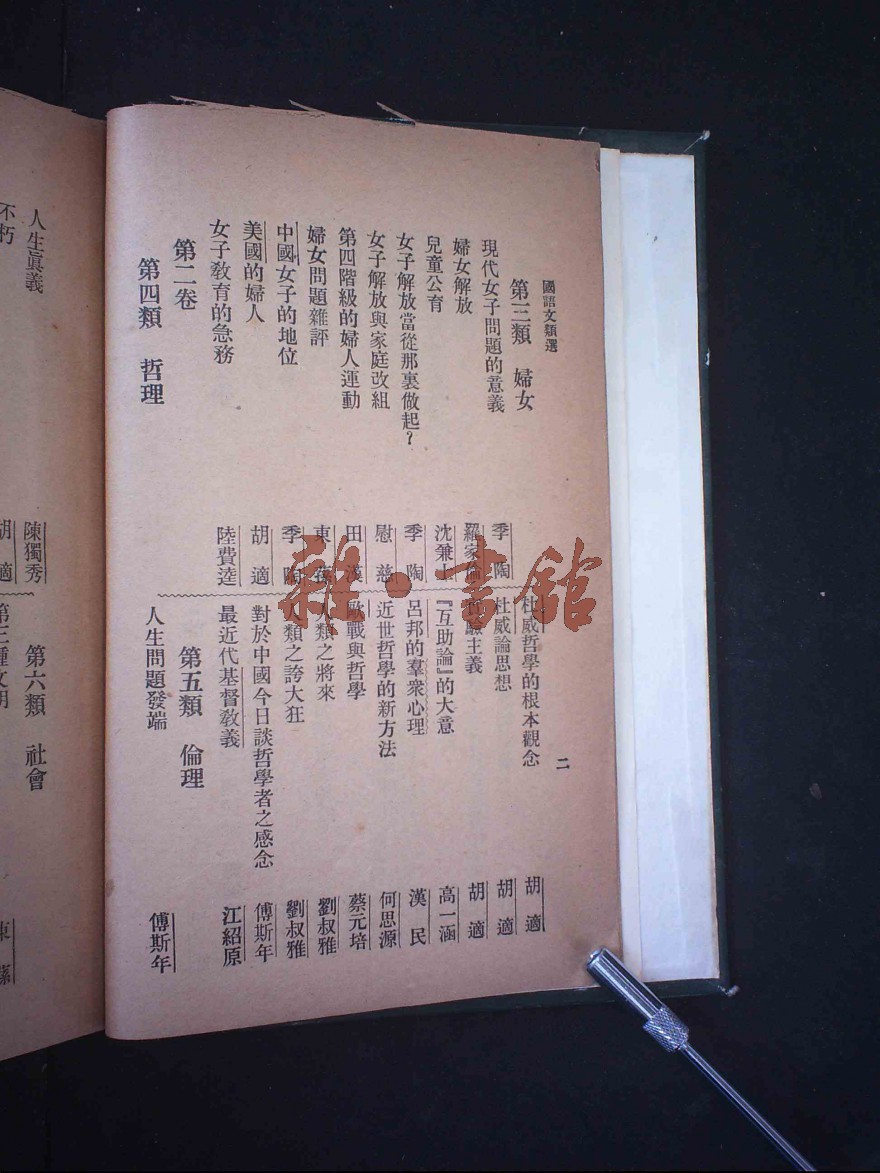 國語文類選
二
第三類 婦女
現代女子問題的意義 季陶
婦女解放 羅家倫
兒童公育 沈兼士
女子解放當從那裏做起？ 季陶
女子解放與家庭改組 慰慈
第四階級的婦人運動 田漢
婦女問題雜評 東蓀
中國女子的地位 季陶
美國的婦人 胡適
女子教育的急務 陸費逵
第二卷
第四類 哲理
杜威哲學的根本觀念 胡適
杜威論思想 胡適
實驗主義 胡適
『互助論』的大意 高一涵
呂邦的羣衆心理 漢民
近世哲學的新方法 何思源
歐戰與哲學 蔡元培
人類之將來 劉叔雅
人類之誇大狂 劉叔雅
對於中國今日談哲學者之感念 傅斯年
最近代基督教義 江紹原
第五類 倫理
人生問題發端 傅斯年
人生眞義 陳獨秀
不朽 胡適
第六類 社會
第三種文明 東蓀
雜·書館